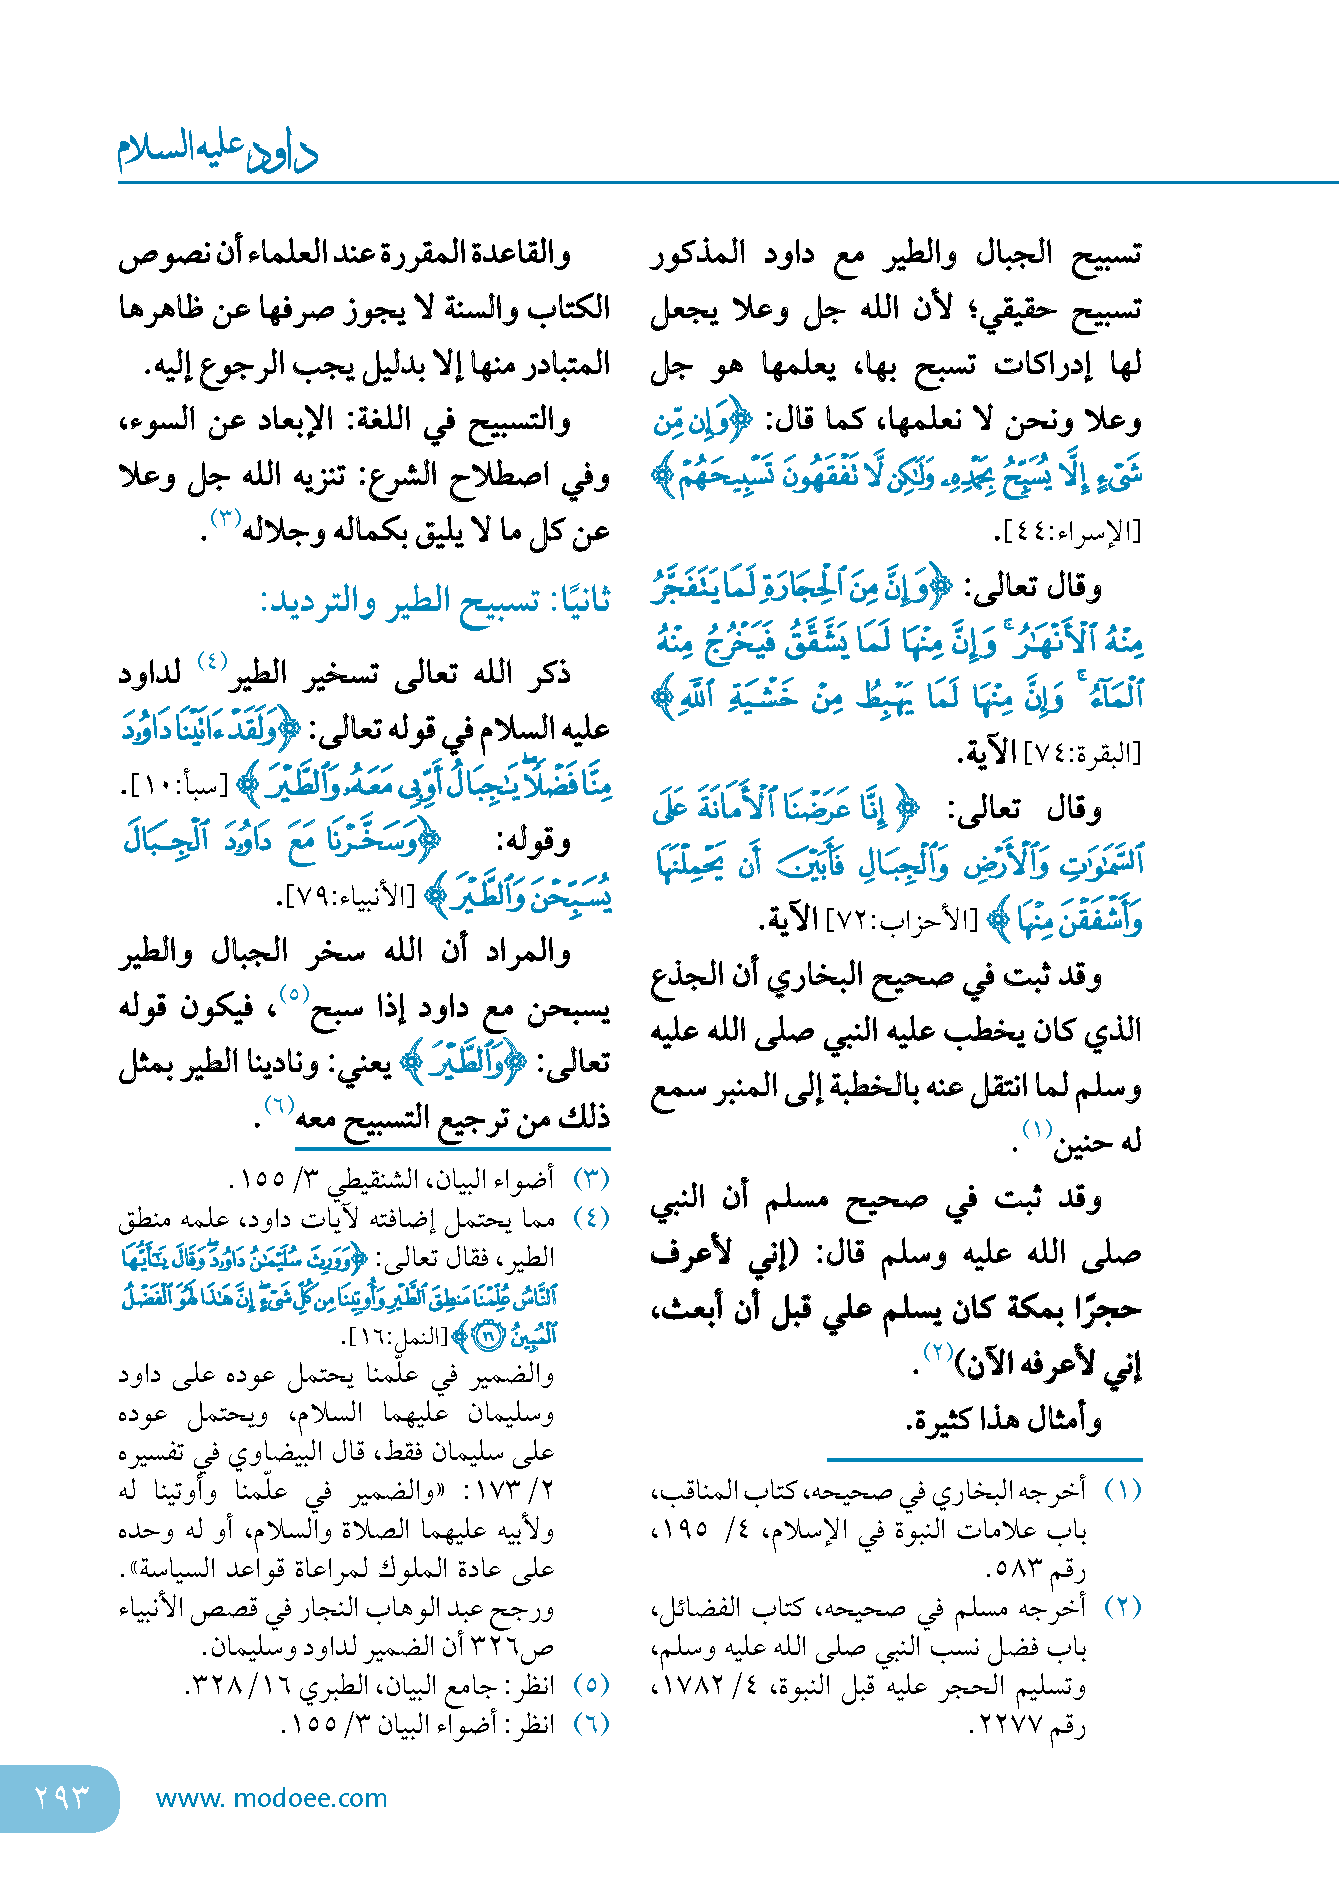 داود عليه السلام
تسبيح الجبال والطير مع داود المذكور
تسبيح حقيقي؛ لأن الله جل وعلا يجعل
لها إدراكات تسبح بها، يعلمها هو جل
وعلا ونحن لا نعلمها، كما قال: ﴿وَإِن مِّن
شَىْءٍ إِلَّا يُسَبِّحُ بِحَمْدِهِۦ وَلَٰكِن لَّا تَفْقَهُونَ تَسْبِيحَهُمْ ﴾
[الإسراء:٤٤].
وقال تعالى: ﴿وَإِنَّ مِنَ ٱلْحِجَارَةِ لَمَا يَتَفَجَّرُ
مِنْهُ ٱلْأَنْهَٰرُ ۚ وَإِنَّ مِنْهَا لَمَا يَشَّقَّقُ فَيَخْرُجُ مِنْهُ
ٱلْمَآءُ ۚ وَإِنَّ مِنْهَا لَمَا يَهْبِطُ مِنْ خَشْيَةِ ٱللَّهِ ﴾
[البقرة:٧٤] الآية.
وقال تعالى: ﴿ إِنَّا عَرَضْنَا ٱلْأَمَانَةَ عَلَى
ٱلسَّمَٰوَٰتِ وَٱلْأَرْضِ وَٱلْجِبَالِ فَأَبَيْنَ أَن يَحْمِلْنَهَا
وَأَشْفَقْنَ مِنْهَا ﴾ [الأحزاب:٧٢] الآية.
وقد ثبت في صحيح البخاري أن الجذع
الذي كان يخطب عليه النبي صلى الله عليه
وسلم لما انتقل عنه بالخطبة إلى المنبر سمع
له حنين(١).
وقد ثبت في صحيح مسلم أن النبي
صلى الله عليه وسلم قال: (إني لأعرف
حجرًا بمكة كان يسلم علي قبل أن أبعث،
إني لأعرفه الآن)(٢).
وأمثال هذا كثيرة.
(١) أخرجه البخاري في صحيحه، كتاب المناقب،
باب علامات النبوة في الإسلام، ٤/ ١٩٥،
رقم ٥٨٣.
(٢) أخرجه مسلم في صحيحه، كتاب الفضائل،
باب فضل نسب النبي صلى الله عليه وسلم،
وتسليم الحجر عليه قبل النبوة، ٤/ ١٧٨٢،
رقم ٢٢٧٧.
والقاعدة المقررة عند العلماء أن نصوص
الكتاب والسنة لا يجوز صرفها عن ظاهرها
المتبادر منها إلا بدليل يجب الرجوع إليه.
والتسبيح في اللغة: الإبعاد عن السوء،
وفي اصطلاح الشرع: تنزيه الله جل وعلا
عن كل ما لا يليق بكماله وجلاله(٣).
ثانيًا: تسبيح الطير والترديد:
ذكر الله تعالى تسخير الطير(٤) لداود
عليه السلام في قوله تعالى: ﴿وَلَقَدْ ءَاتَيْنَا دَاوُۥدَ
مِنَّا فَضْلًا ۖ يَٰجِبَالُ أَوِّبِى مَعَهُۥ وَٱلطَّيْرَ ﴾ [سبأ:١٠].
وقوله: ﴿وَسَخَّرْنَا مَعَ دَاوُۥدَ ٱلْجِبَالَ
يُسَبِّحْنَ وَٱلطَّيْرَ ﴾ [الأنبياء:٧٩].
والمراد أن الله سخر الجبال والطير
يسبحن مع داود إذا سبح(٥)، فيكون قوله
تعالى: ﴿وَٱلطَّيْرَ ﴾ يعني: ونادينا الطير بمثل
ذلك من ترجيع التسبيح معه(٦).
(٣) أضواء البيان، الشنقيطي ٣/ ١٥٥.
(٤) مما يحتمل إضافته لآيات داود، علمه منطق
الطير، فقال تعالى: ﴿وَوَرِثَ سُلَيْمَٰنُ دَاوُۥدَ ۖ وَقَالَ يَٰٓأَيُّهَا
ٱلنَّاسُ عُلِّمْنَا مَنطِقَ ٱلطَّيْرِ وَأُوتِينَا مِن كُلِّ شَىْءٍ ۖ إِنَّ هَٰذَا لَهُوَ ٱلْفَضْلُ
ٱلْمُبِينُ ١٦﴾ [النمل:١٦].
والضمير في علّمنا يحتمل عوده على داود
وسليمان عليهما السلام، ويحتمل عوده
على سليمان فقط، قال البيضاوي في تفسيره
٢/ ١٧٣: «والضمير في علّمنا وأوتينا له
ولأبيه عليهما الصلاة والسلام، أو له وحده
على عادة الملوك لمراعاة قواعد السياسة».
ورجح عبد الوهاب النجار في قصص الأنبياء
ص٣٢٦ أن الضمير لداود وسليمان.
(٥) انظر: جامع البيان، الطبري ١٦/ ٣٢٨.
(٦) انظر: أضواء البيان ٣/ ١٥٥.
٢٩٣
www. modoee.com